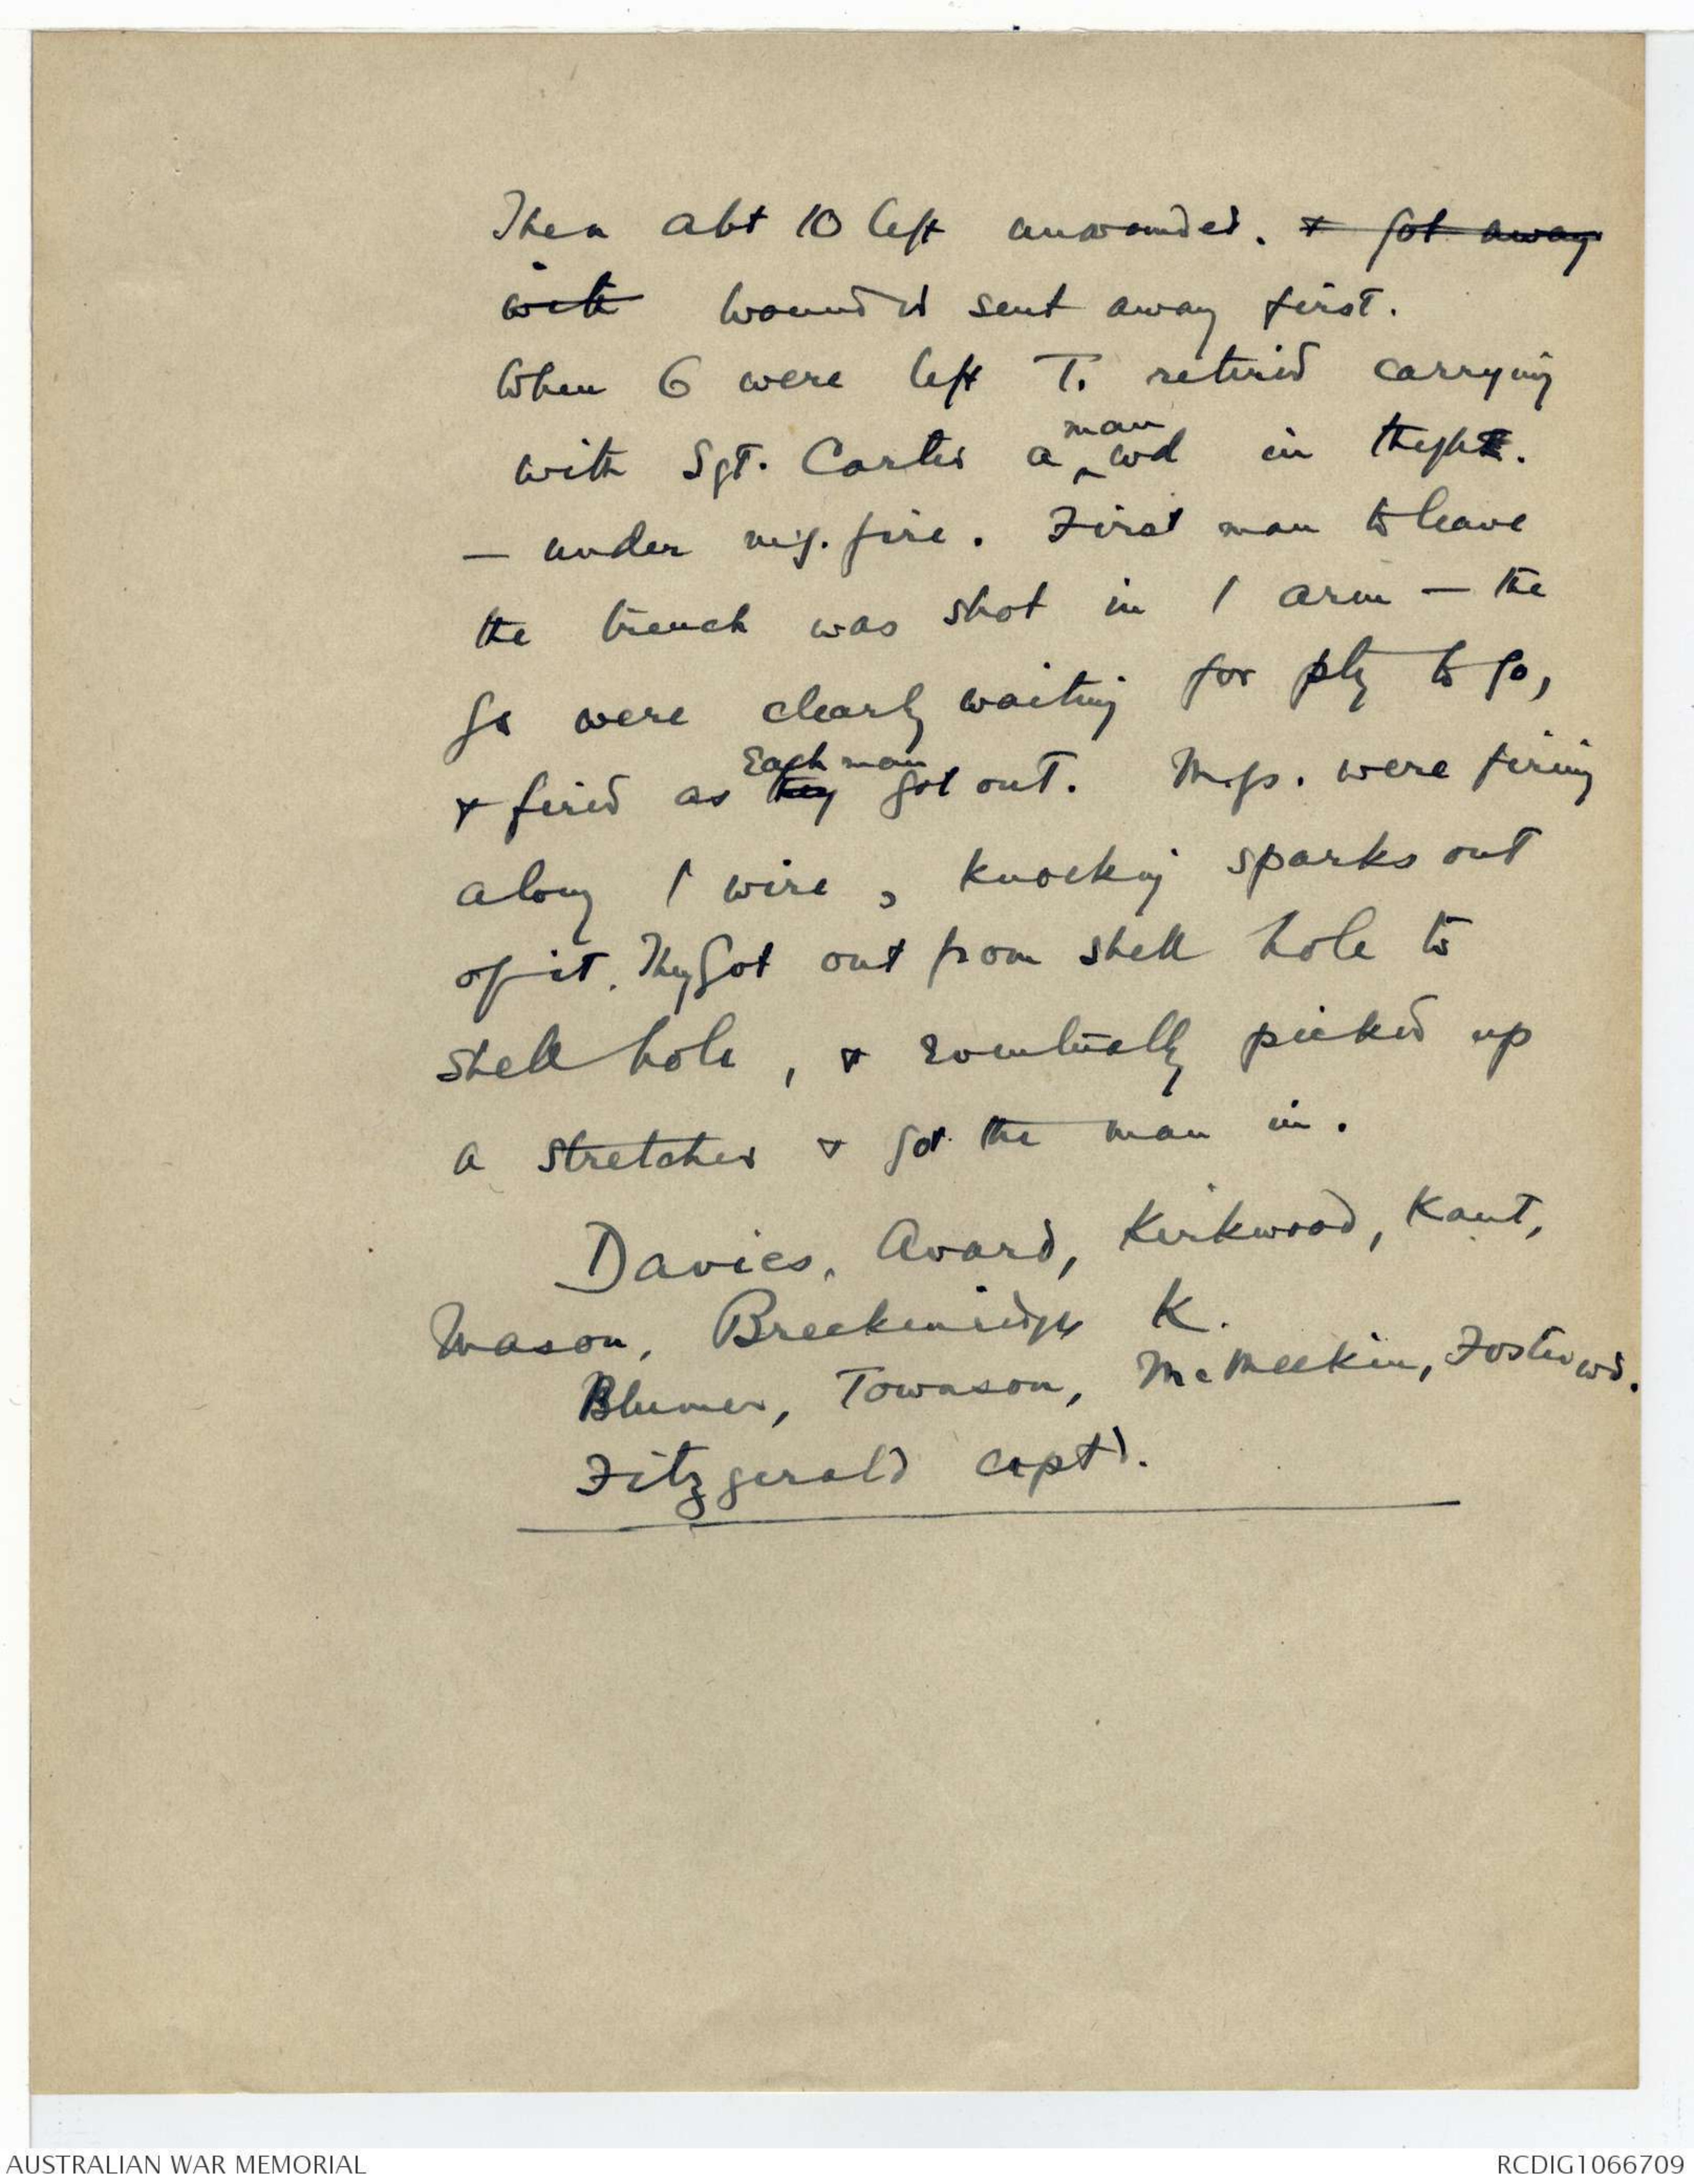 Then abt 10 left unwounded. & got away
with wounded sent away first.
When 6 were left T. retired carrying
with Sgt. Carter a man wd in thigh.
— under m.g. fire. First man to leave
the trench was shot in / arm — the
gs were clearly waiting for pty to go,
& fired as they Each man got out. M.gs. were firing
along / wire, knocking sparks out
of it. They got out from shell hole to
shell hole, & eventually picked up
a stretcher & got the man in.
Davies, Avard, Kirkwood, Kaut,
Wason, Breckenridge K.
Blumer, Townson, McMeekin, Foster wd.
Fitzgerald captd.
AUSTRALIAN WAR MEMORIAL
RCDIG1066709